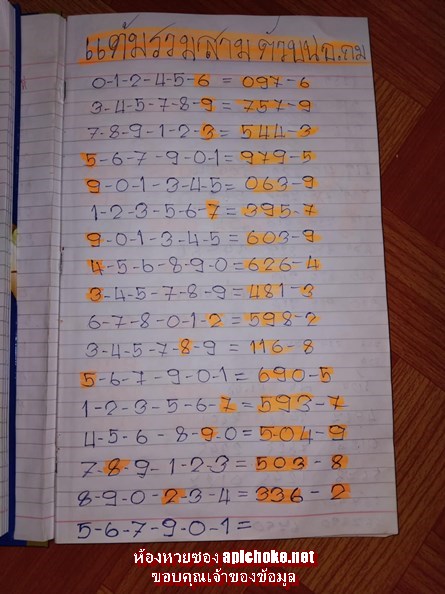 แต้มรวมสามตัวบนอ.ถม
0-1-2-4-5-6 = 097-6
3-4-5-7-8-9 = 757-9
7-8-9-1-2-3 = 544-3
5-6-7-9-0-1 = 979-5
9-0-1-3-4-5 = 063-9
1-2-3-5-6-7 = 395-7
9-0-1-3-4-5 = 603-9
4-5-6-8-9-0 = 626-4
3-4-5-7-8-9 = 481-3
6-7-8-0-1-2 = 598-2
3-4-5-7-8-9 = 116-8
5-6-7-9-0-1 = 690-5
1-2-3-5-6-7 = 593-7
4-5-6-8-9-0 = 504-9
7-8-9-1-2-3 = 503-8
8-9-0-2-3-4 = 336-2
5-6-7-9-0-1 =
ห้องหวยซอง apichoke.net
ขอบคุณเจ้าของข้อมูล